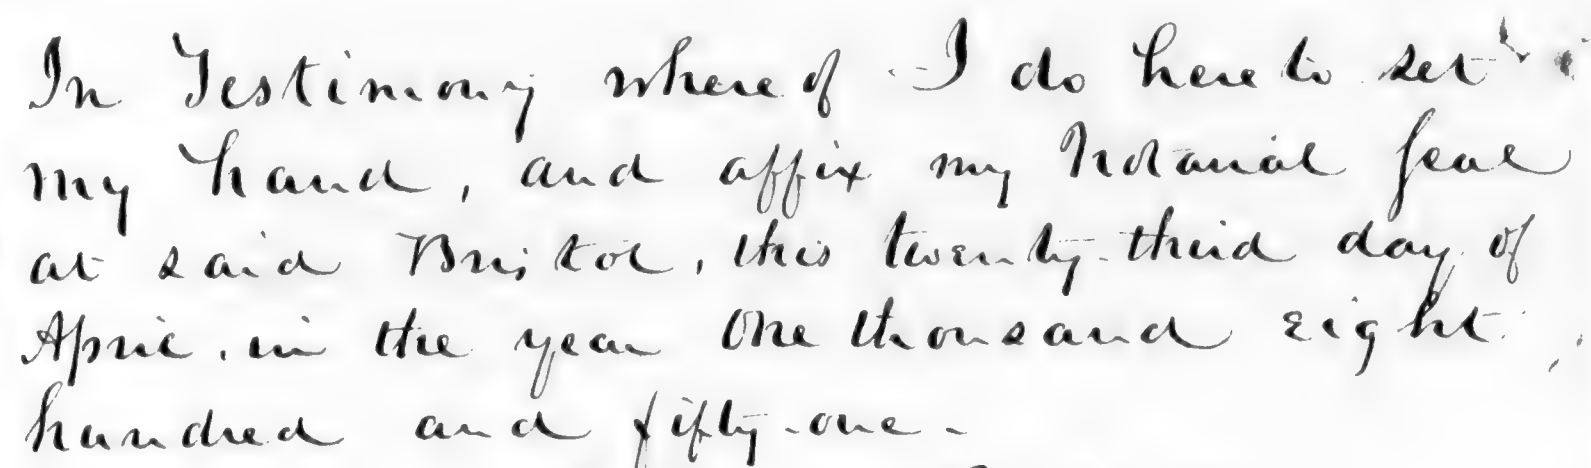 In Testimony whereof I do hereto set
my hand, and affix my Notarial Seal
at said Bristol, this twenty-third day of
April, in the year One thousand eight
hundred and fifty-one-